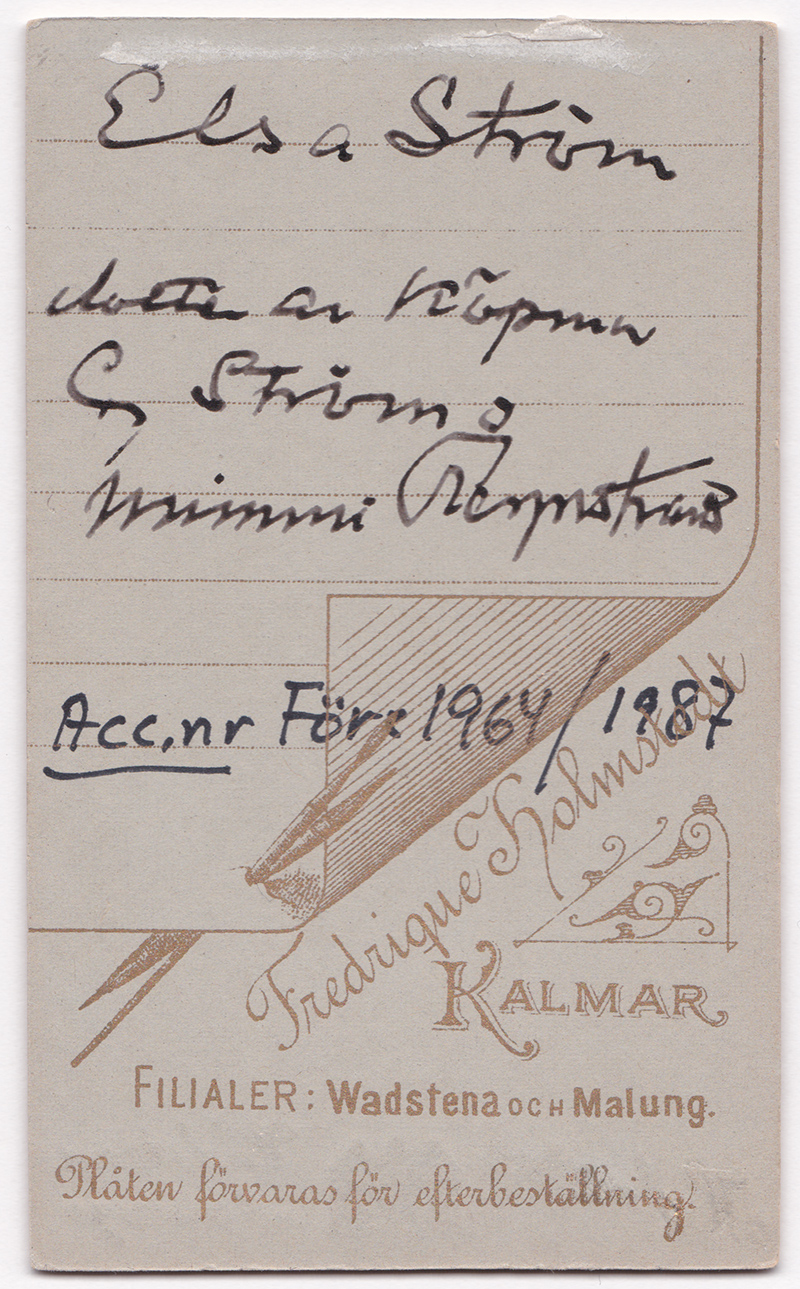 Elsa Ström
dotter av Köpman
G Ström o
Mimmi
Acc.nr För: 1964/1987
Fredrique Holmstedt
KALMAR
FILIALER: Wadstena OCH Malung.
Plåten förvaras för efterbeställning.